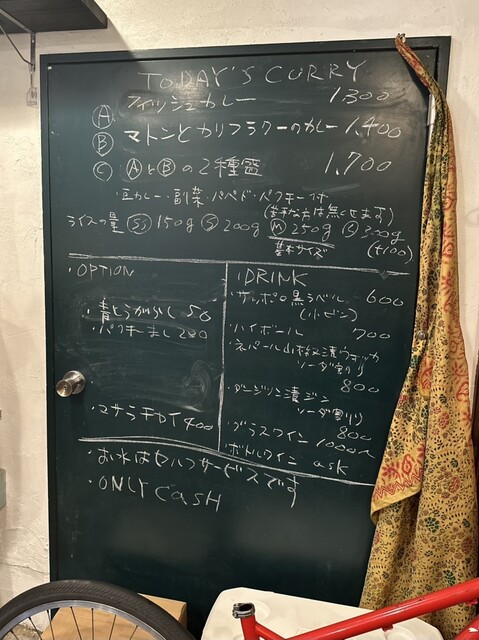 TODAY'S CURRY
Ⓐ フィッシュカレー 1,300
Ⓑ マトンとカリフラワーのカレー 1,400
Ⓒ ⒶとⒷの2種盛 1,700
・豆カレー・副菜・パパド・パクチー付
(苦手な方は無くせます)
ライスの量 ⓈⓈ 150g Ⓢ 200g Ⓜ 250g Ⓛ 300g
基本サイズ (+100)
・OPTION
・青とうがらし 50
・パクチーまし 200
・マサラチャイ 400
・DRINK
・サッポロ黒ラベル 600
(小ビン)
・ハイボール 700
・ネパール山椒漬ウォッカ
ソーダ割り
800
・ダージリン漬ジン
ソーダ割り
800
・グラスワイン 1000~
・ボトルワイン ask
・お水はセルフサービスです
・ONLY CASH